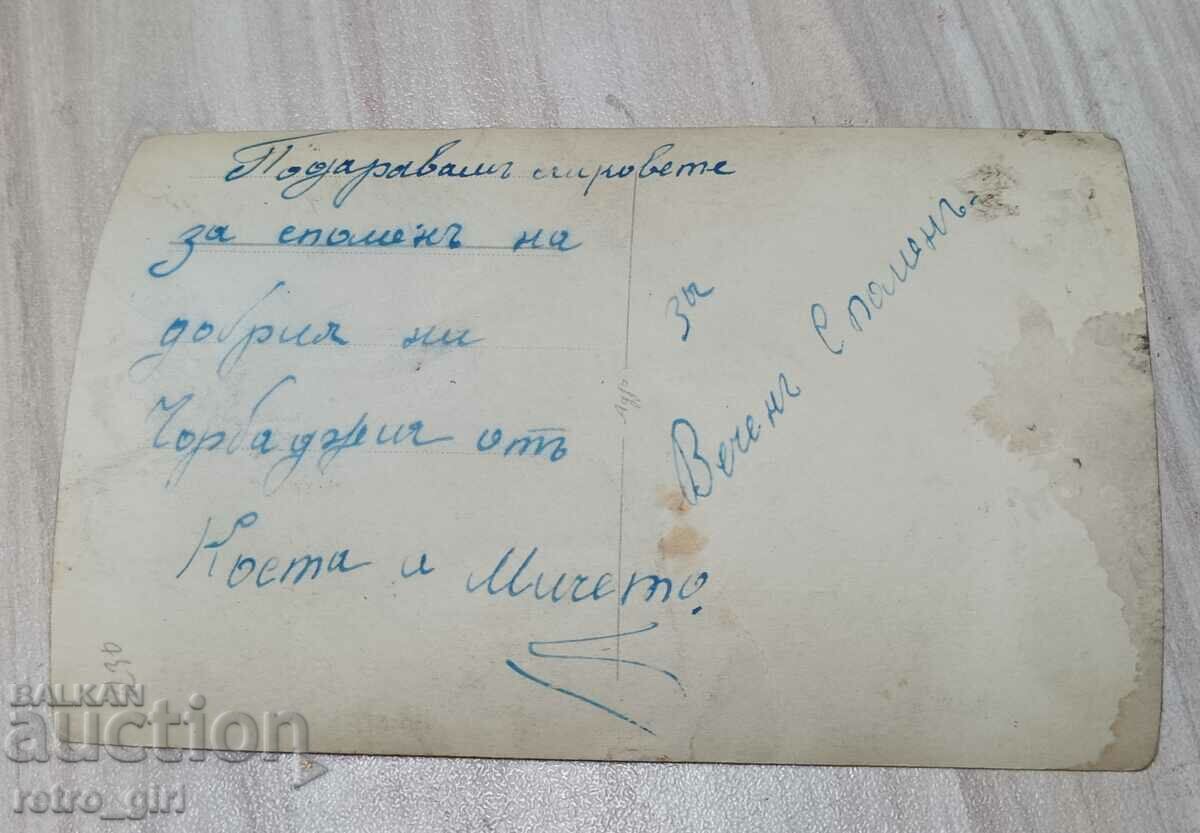 Подаравамъ
за споменъ на
добрия ни
Чорбаджия отъ
Коста и Мичето
за
Веченъ Споменъ.
BALKAN
auction
retro_girl